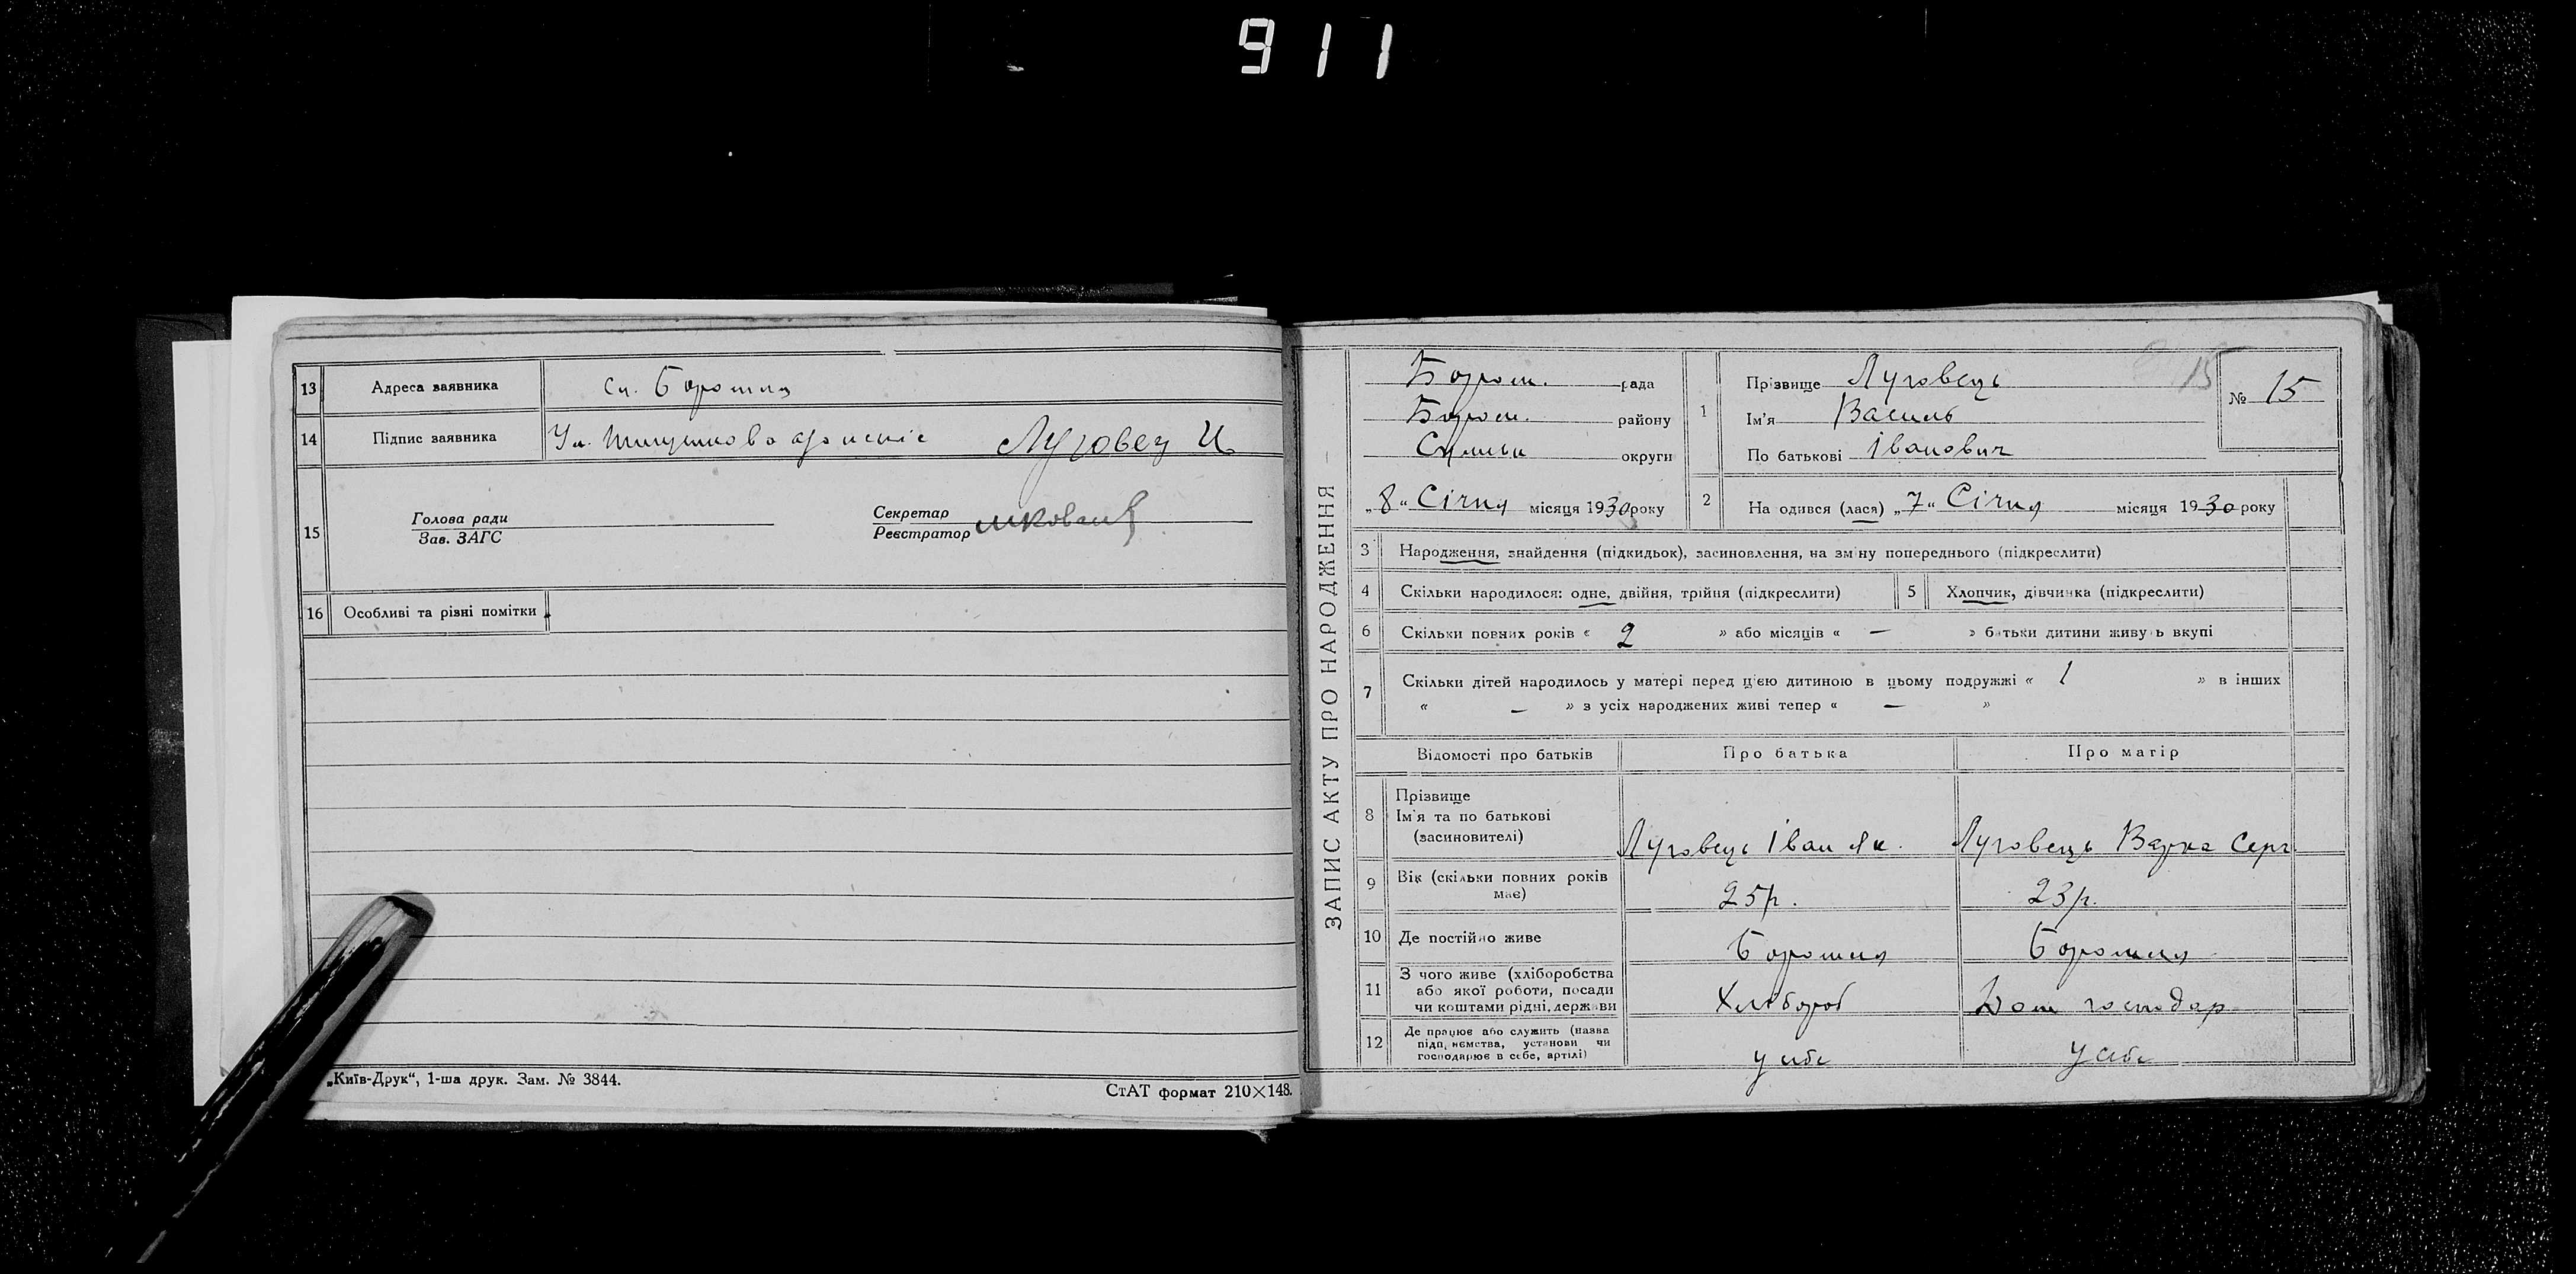 911
13 Адреса заявника сл. Боромля
14 Підпис заявника Ул. Луговец И
15 Голова ради
Зав. ЗАГС
Секретар
Реєстратор
16 Особливі та різні помітки
„Київ-Друк“, 1-ша друк. Зам. № 3844.
СтАТ формат 210×148.
ЗАПИС АКТУ ПРО НАРОДЖЕННЯ
Бором. рада
Бором. району
Сумськ округи
„8“ Січня місяця 1930 року
1 Прізвище Луговець
Ім'я Василь
По батькові Іванович
15
№ 15
2 На одився (лася) „7“ Січня місяця 1930 року
3 Народження, знайдення (підкидьок), засиновлення, на зміну попереднього (підкреслити)
4 Скільки народилося: одне, двійня, трійня (підкреслити)
5 Хлопчик, дівчинка (підкреслити)
6 Скільки повних років « 2 » або місяців « — » батьки дитини живуть вкупі
7 Скільки дітей народилось у матері перед цією дитиною в цьому подружжі « 1 » в інших
« — » з усіх народжених живі тепер « — »
Відомості про батьків Про батька Про матір
8 Прізвище
Ім'я та по батькові
(засиновителі)
Луговець Іван Як. Луговець Варка Серг.
9 Вік (скільки повних років
має)
25 р. 23 р.
10 Де постійно живе Боромля Боромля
11 З чого живе (хліборобства
або якої роботи, посади
чи коштами рідні, держави
Хлібороб Дом господар
12 Де працює або служить (назва
підприємства, установи чи
господарює в себе, артілі)
у себе у себе